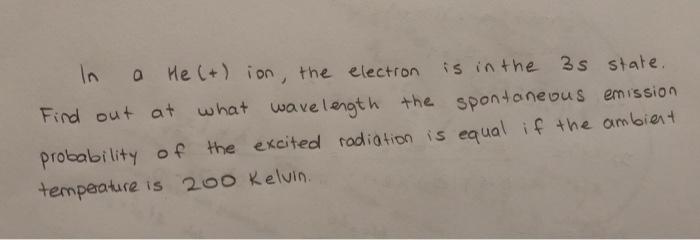 In a He(+) ion, the electron is in the 3s state.
Find out at what wavelength the spontaneous emission
probability of the excited radiation is equal if the ambient
temperature is 200 Kelvin.